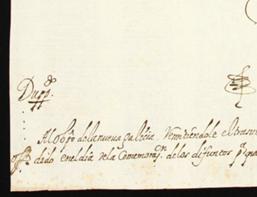 Dupp.do
Al obpo de la nueua galicia Remitiendole el tras
dado en el dia de la Comemoraçn de los difuntos pa q